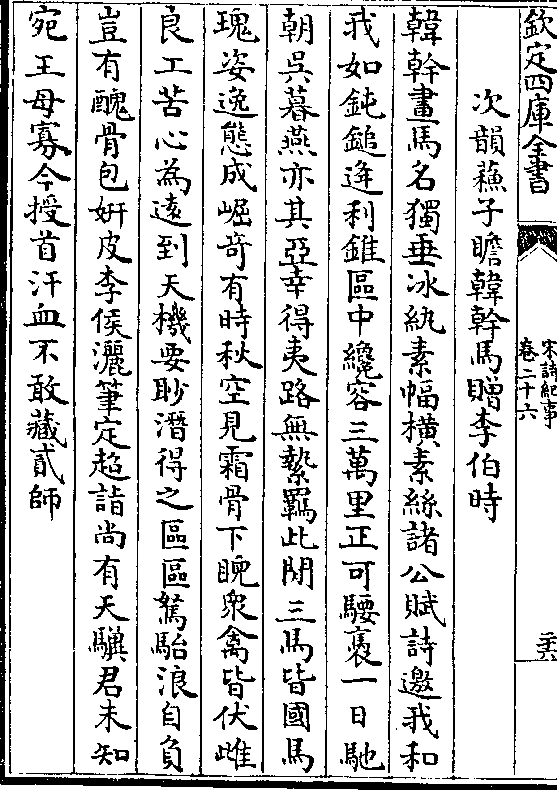 欽定四庫全書
宋詩紀事
卷二十六
次韻蘓子瞻韓幹馬贈李伯時
韓幹畫馬名獨垂冰紈素幅橫素絲諸公賦詩邀我和
我如鈍鎚迕利錐區中纔容三萬里正可騕褭一日馳
朝呉暮燕亦其亞幸得夷路無縶羈此閒三馬皆國馬
瑰姿逸態成崛竒有時秋空見霜骨下睨衆禽皆伏雌
良工苦心為遠到天機要眇潛得之區區駑駘浪自負
豈有醜骨包妍皮李侯灑筆定超詣尚有天驥君未知
宛王母寡今授首汗血不敢藏貳師